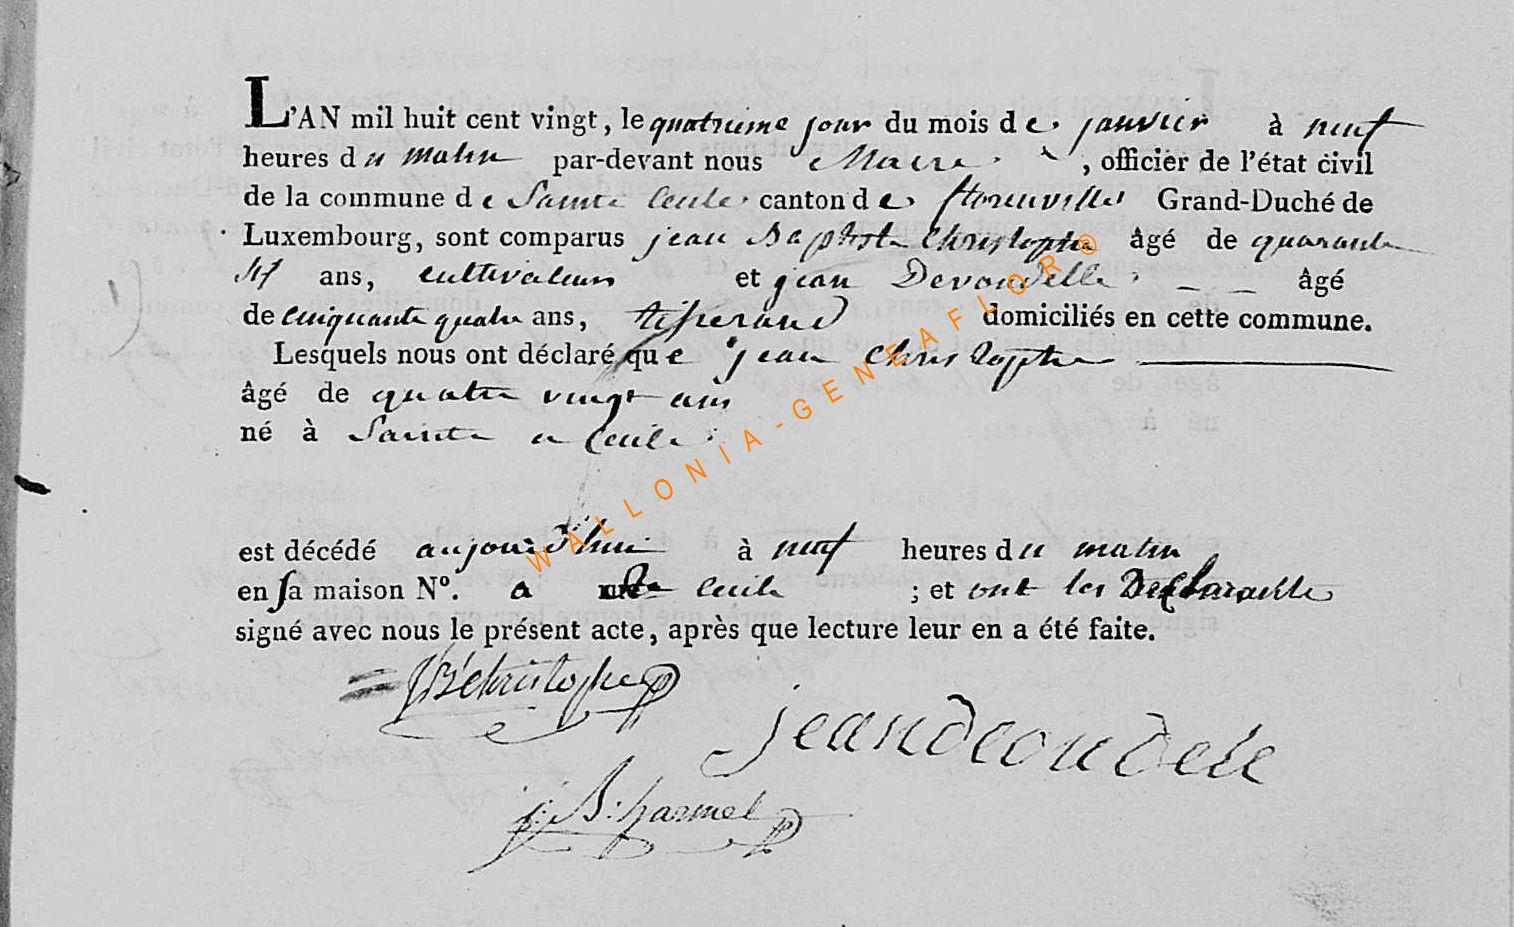 L'AN mil huit cent vingt, le quatrieme jour du mois de janvier à neuf
heures du matin par-devant nous Maire, officier de l'état civil
de la commune de Sainte Cecile canton de florenville Grand-Duché de
Luxembourg, sont comparus jean Baptiste Christophe âgé de quarante
ans, cultivateur et jean Devoudelle âgé
de cinquante quatre ans, tisserand domiciliés en cette commune.
Lesquels nous ont déclaré que jean Christophe
âgé de quatre vingt ans
né à Sainte Cecile
est décédé aujourd'hui à neuf heures du matin
en sa maison N°. a Cecile ; et ont les
signé avec nous le présent acte, après que lecture leur en a été faite.
JB Christophe
jean
j: B: harmel
WALLONIA-GENEAFLOR®